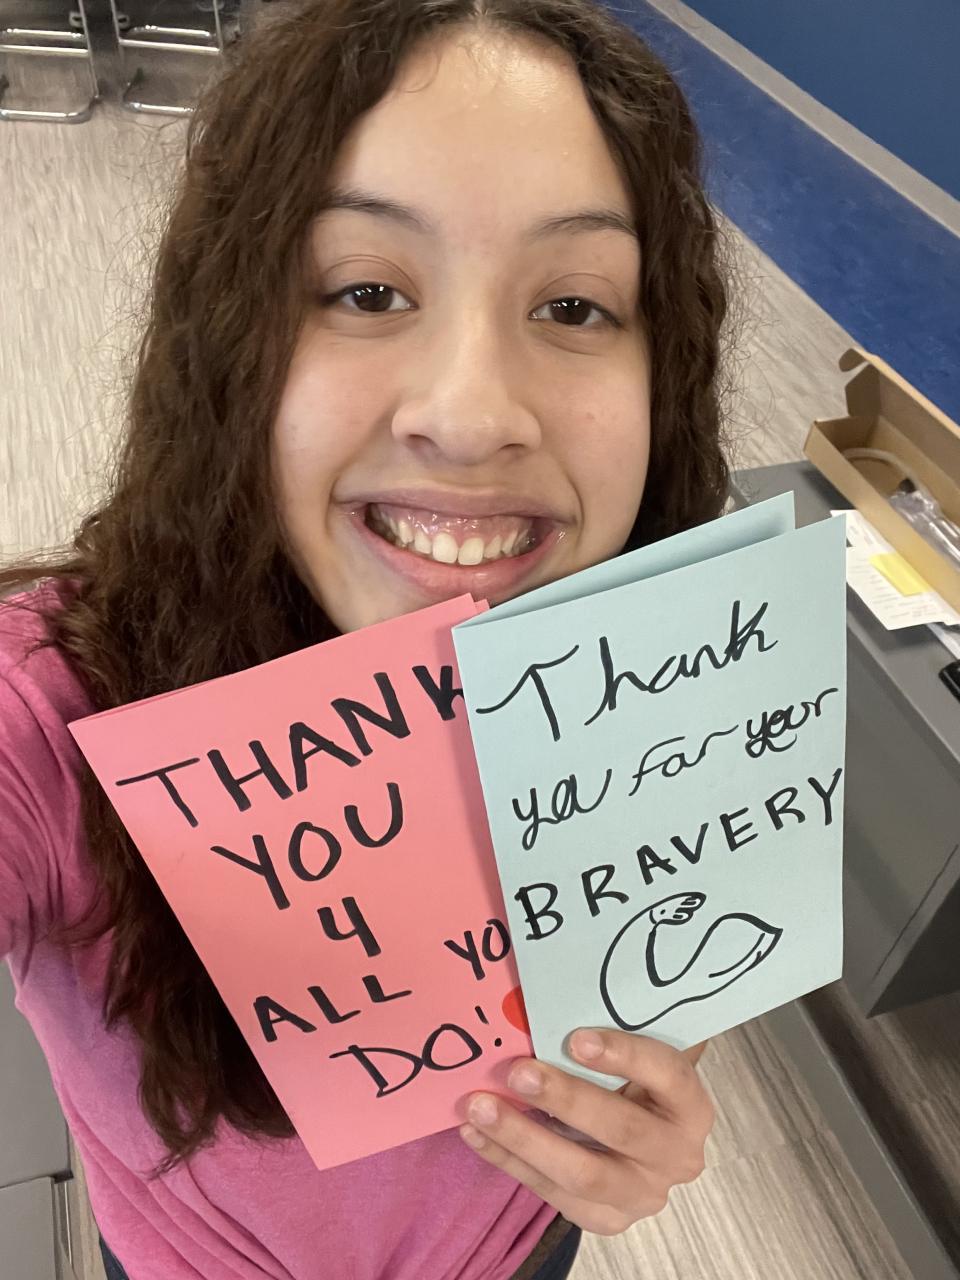 THANK
YOU
4
ALL YO
DO!
Thank
you for your
BRAVERY